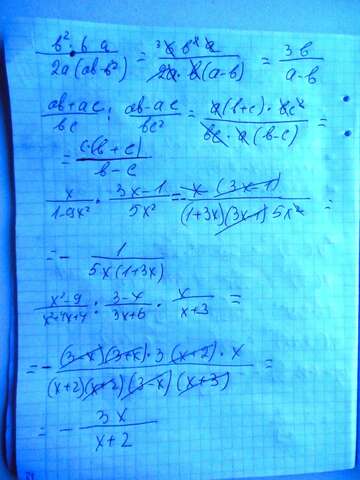 b²·6a / 2a(ab-b²) = ³6̶ b² a / 2a·b(a-b) = 3b / a-b
ab+ac / bc : ab-ac / bc² = a(b+c)·bc² / bc·a(b-c) =
= c·(b+c) / b-c
x / 1-9x² · 3x-1 / 5x² = x(3x-1) / (1+3x)(3x-1)5x² =
= - 1 / 5x(1+3x)
x²-9 / x²+4x+4 : 3-x / 3x+6 · x / x+3 =
= - (3-x)(3+x)·3(x+2)·x / (x+2)(x+2)(3-x)(x+3) =
= - 3x / x+2